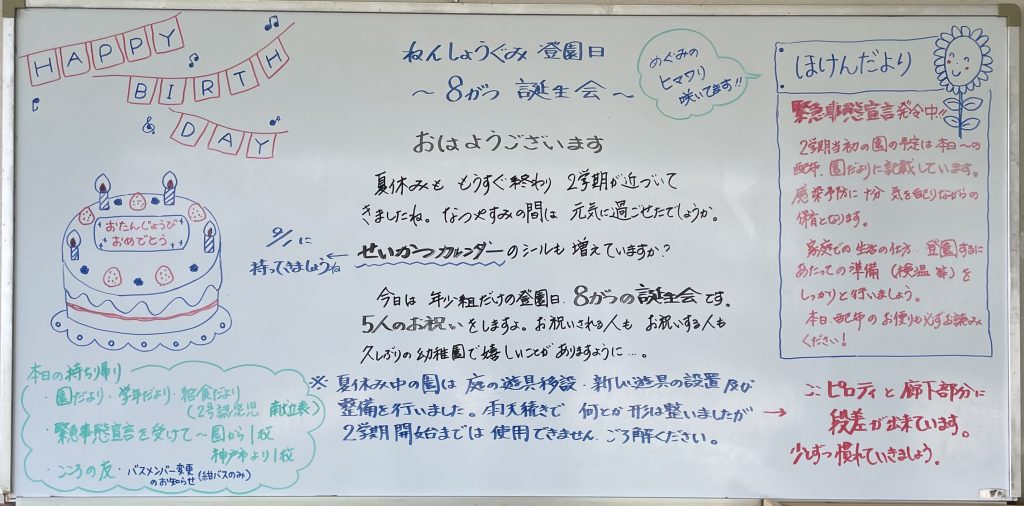 HAPPY
BIRTH
DAY
おたんじょうび
おめでとう
ねんしょうぐみ 登園日
～ 8がつ 誕生会 ～
めぐみの
ヒマワリ
咲いてます!!
おはようございます
夏休みも もうすぐ終わり 2学期が近づいて
きましたね。なつやすみの間は 元気に過ごせたでしょうか。
9/1に
持ってきましょうね
← せいかつカレンダーのシールも 増えていますか？
今日は 年少組だけの登園日、8がつの誕生会です。
5人のお祝いをしますよ。お祝いされる人も お祝いする人も
久しぶりの幼稚園で嬉しいことがありますように…。
※ 夏休み中の園は 庭の遊具移設・新しい遊具の設置及び
整備を行いました。雨天続きで 何とか形は整いましたが
2学期開始までは使用できません。ご了解ください。
→ ピロティと廊下部分に
段差が出来ています。
少しずつ慣れていきましょう。
ほけんだより
緊急事態宣言発令中!!
2学期当初の園の予定は本日〜の
配布、園だよりに記載しています。
感染予防に十分 気を配りながらの
保育となります。
家庭での生活の仕方、登園するに
あたっての準備（検温等）を
しっかりと行いましょう。
本日配布のお便りも必ずお読み
ください！
本日の持ち帰り
・園だより・学年だより・給食だより
(2号認定児 献立表)
・緊急事態宣言を受けて～園から1枚
神戸市より1枚
・こころの友・バスメンバー変更
のお知らせ(紺バスのみ)